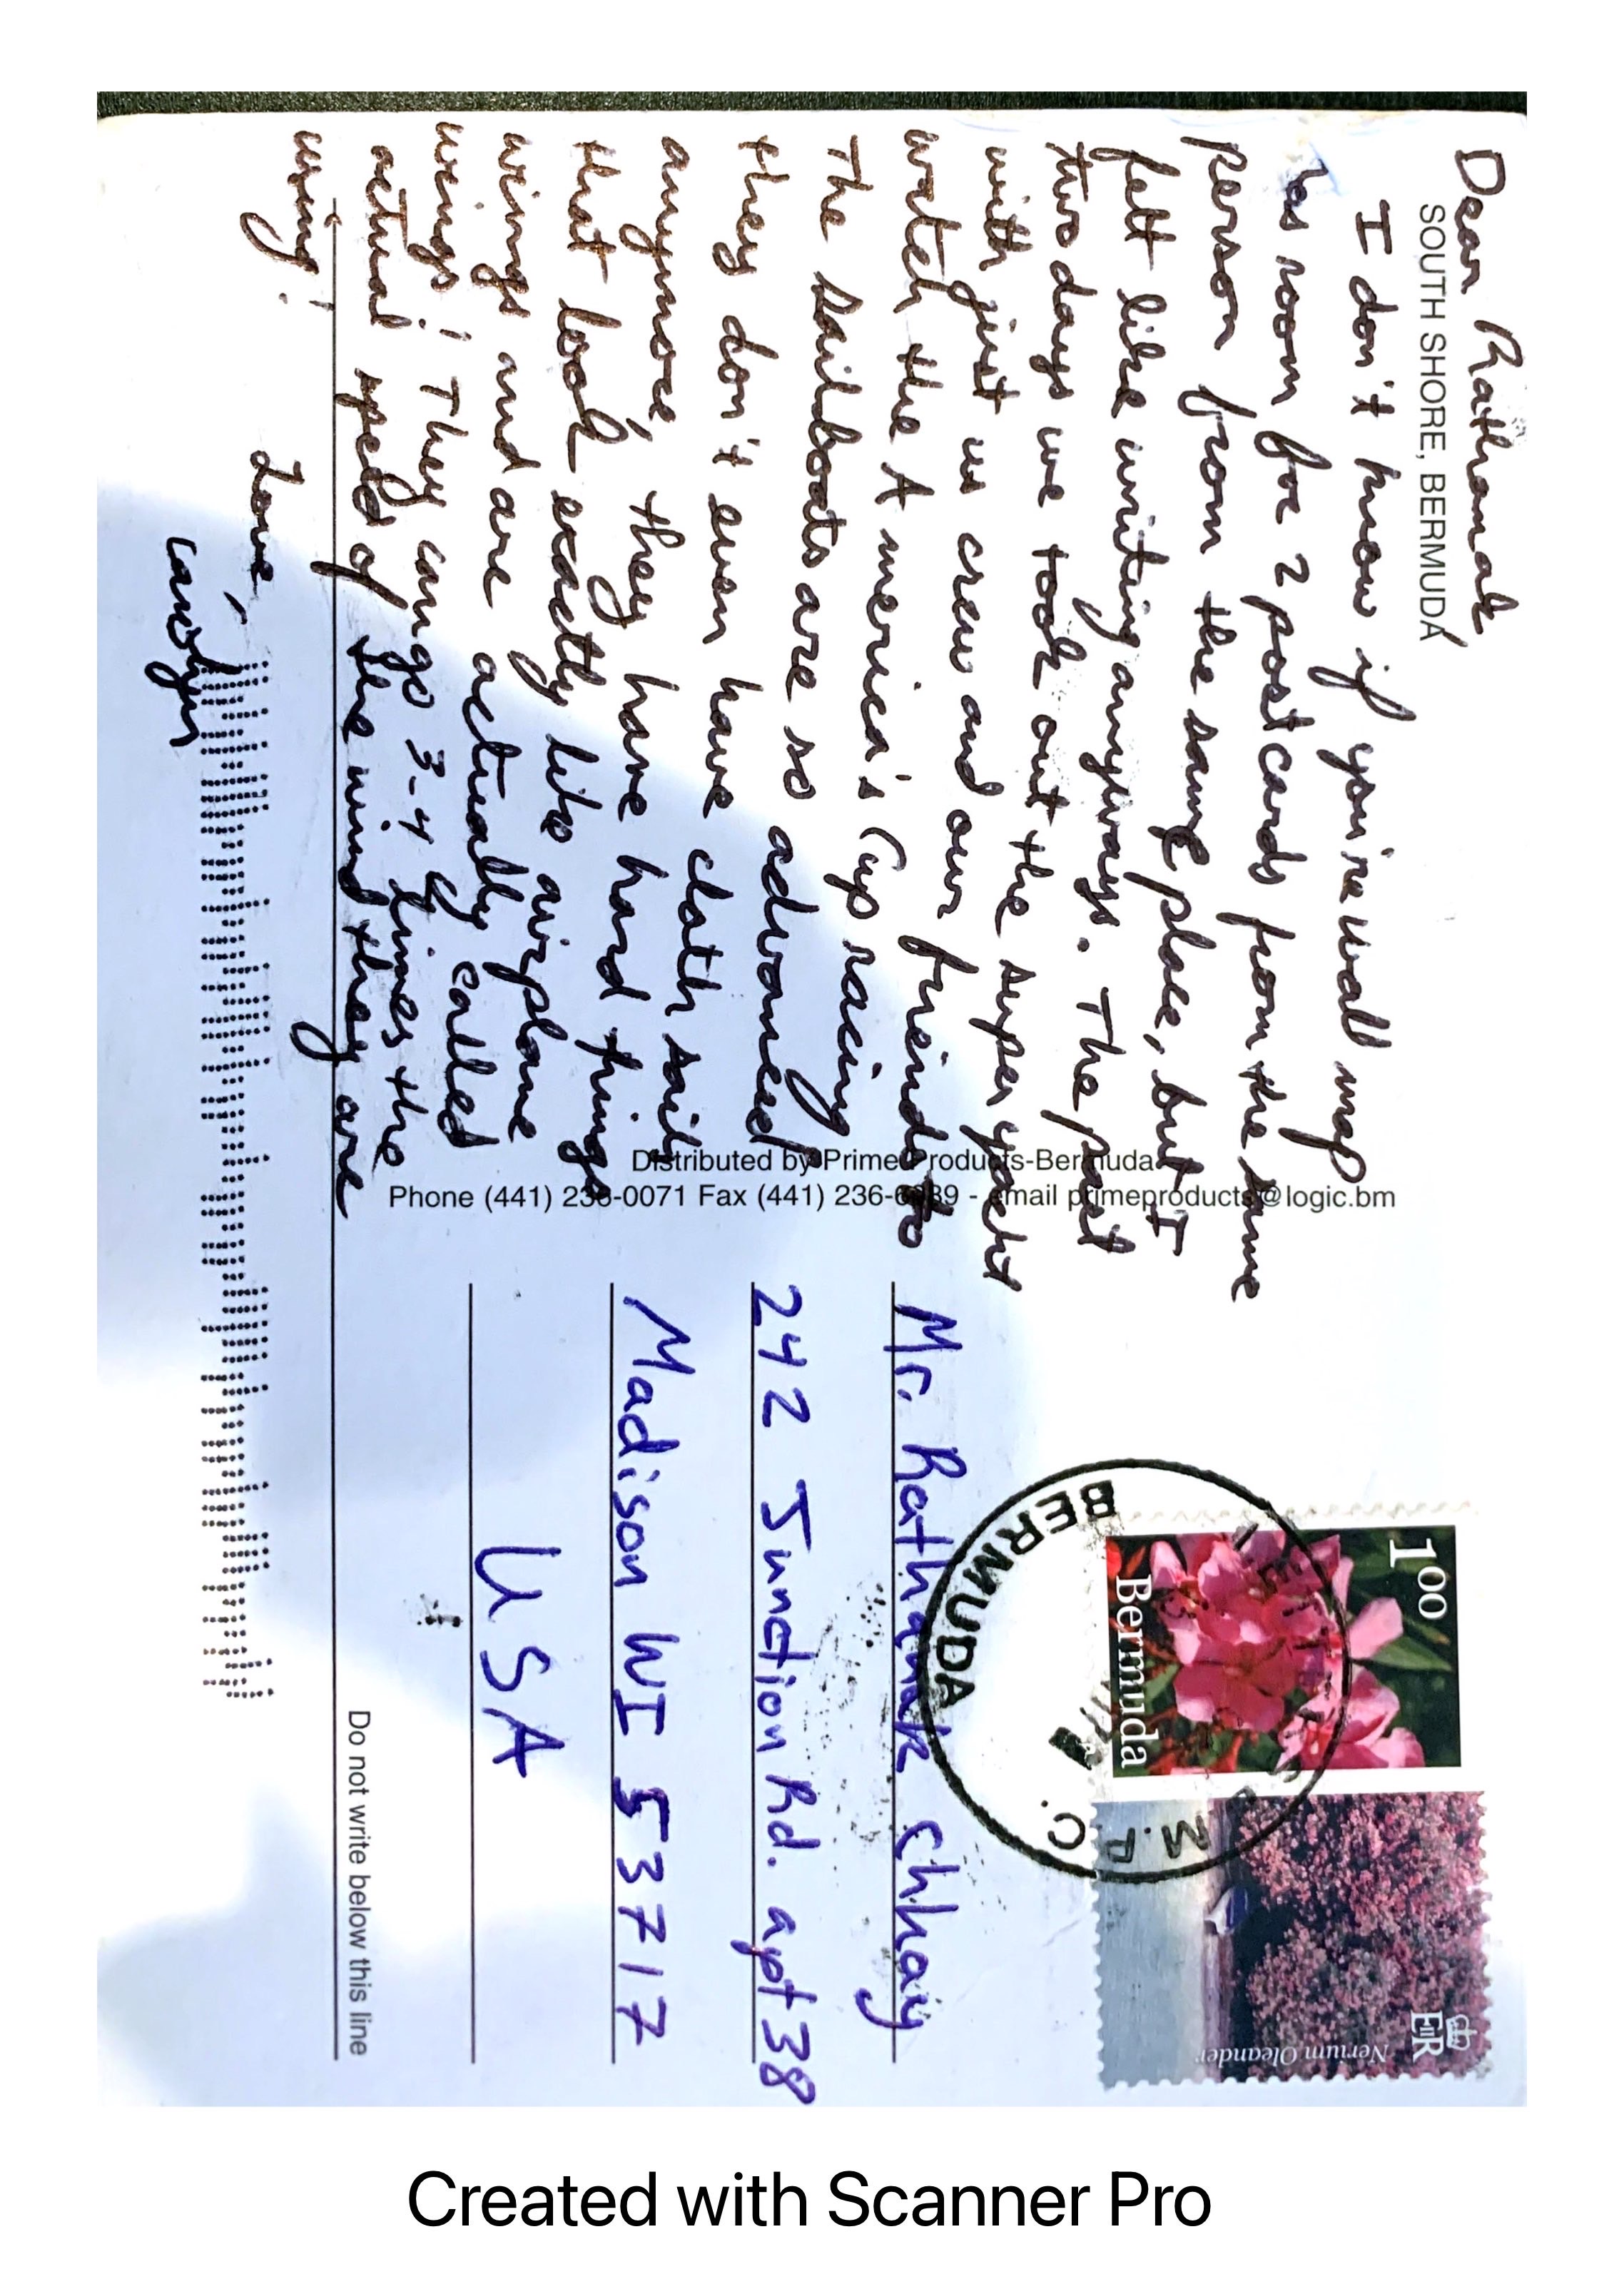 Dear Rathanak
SOUTH SHORE, BERMUDA
I don't know if you're wall map
has room for 2 postcards from the same
person from the same place, but I
felt like writing anyways. The past
two days we took out the super yacht
with just us crew and our freinds to
watch the America's Cup racing
The sailboats are so advanced
they don't even have cloth sails
anymore, they have hard things
that look exactly like airplane
wings and are actually called
wings! They can go 3-4 times the
actual speed of the wind they are
using!
Love,
Carolyn
Distributed by Prime Products-Bermuda
Phone (441) 236-0071 Fax (441) 236-6639 - email primeproducts@logic.bm
100
Bermuda
EIIR
Nerium Oleander
BERMUDA
Mr. Rathanak Chhay
242 Junction Rd. apt 38
Madison WI 53717
USA
Do not write below this line
Created with Scanner Pro